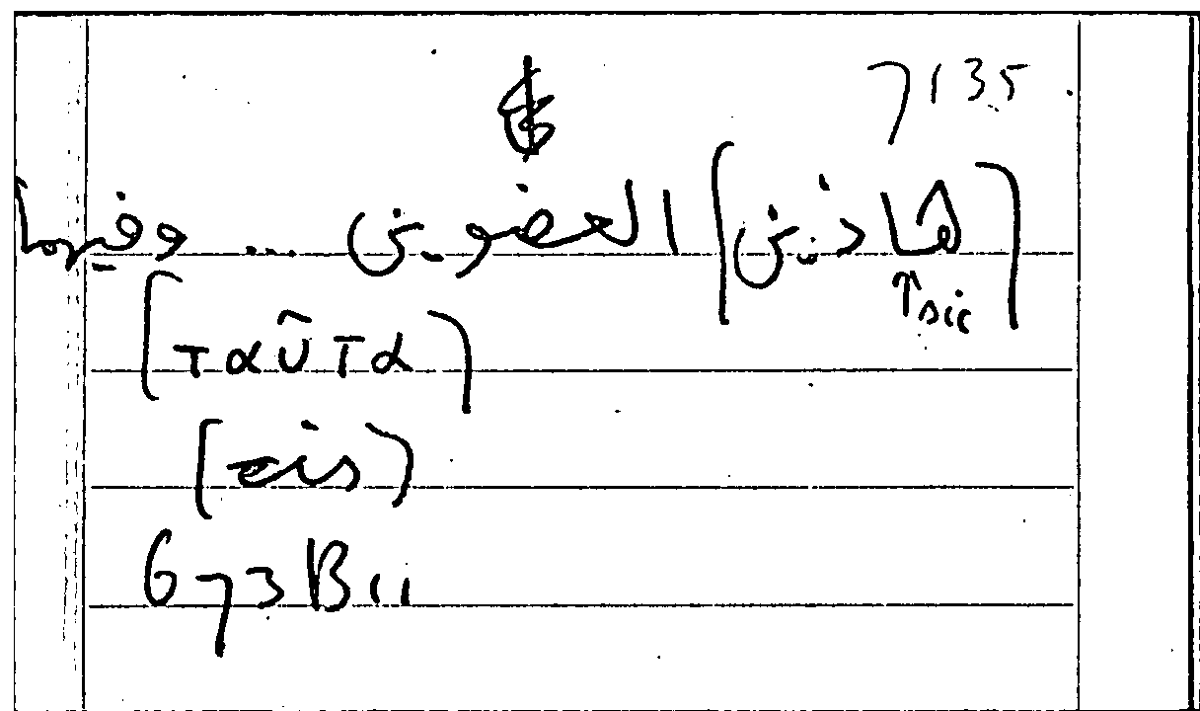 7135
[هاذين] العضوين ... وفيهما
↑sic
[ταῦτα]
[εἰς]
673B11